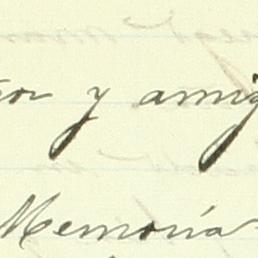 y amig
Memoria